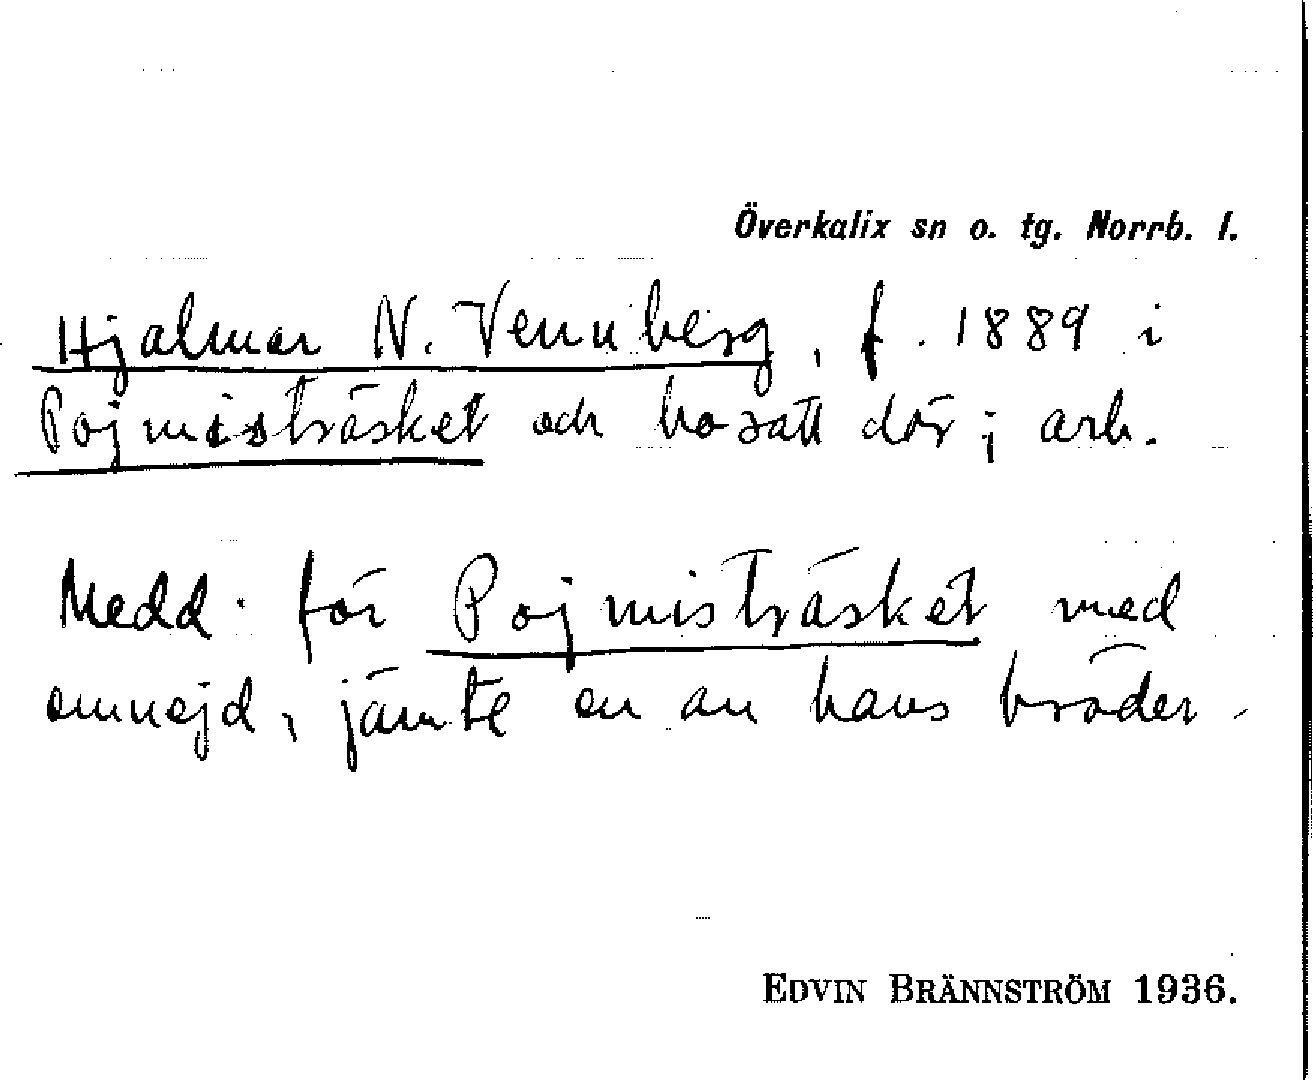 Överkalix sn o. tg. Norrb. l.
Hjalmar N. Vennberg, f. 1889 i
Pojmisträsket och bosatt där; arb.
Medd. för Pojmisträsket med
omnejd, jämte en an hans bröder.
EDVIN BRÄNNSTRÖM 1936.